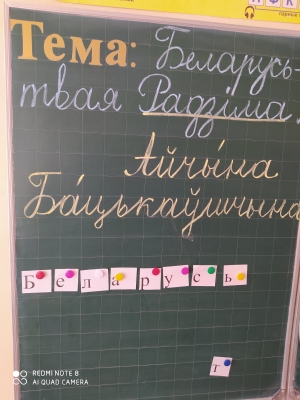 Тема: Беларусь-
твая Радзіма.
Айчы́на
Ба́цькаўшчына
Беларусь
т
REDMI NOTE 8
AI QUAD CAMERA